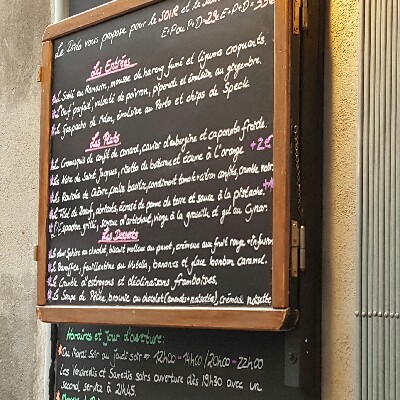 Le Bistro vous propose pour le SOIR et le
E+P ou P+D=29€ E+P+D=35€
Les Entrées
Sablé au Romarin, mousse de hareng fumé et légumes croquants,
Oeuf parfait, velouté de poivron, piperade et émulsion au gingembre,
Gaspacho de Melon, émulsion au Porto et chips de Speck.
Les Plats
Cromesquis de confit de canard, caviar d'aubergine et caponata froide.
Noix de Saint Jacques, risotto de betterave et écume à l'orange +2€
Raviole de Chèvre, coulis basilic, condiment tomate citron confits, crumble noir.
Filet de Boeuf, abricots, écrasé de pomme de terre et sauce à la pistache.
Espadon grillé, d'artichaut, vierge à la grenade et gel au Cynar.
Les Desserts
Sphère au chocolat, biscuit moelleux au pavot, crémeux aux fruits rouges
Banoffee, feuillantine au Nutella, bananes et glace bonbon caramel.
Crumble d'estragon et déclinaisons framboises.
La Soupe de Pêche, brownie au chocolat (amandes noisettes), crémeux noisette
Horaires et jour d'ouverture:
Du Mardi Soir au jeudi soir => 12h00-14h00/20h00-22h00
Les Vendredis et Samedis soirs ouverture dès 19h30 avec un
second service à 21h45.